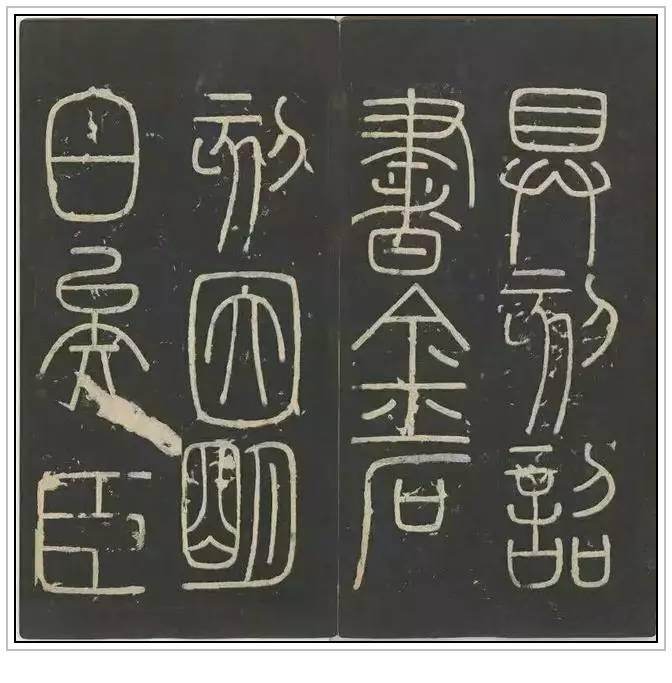 具刻詔
書金石
刻因明
白矣臣